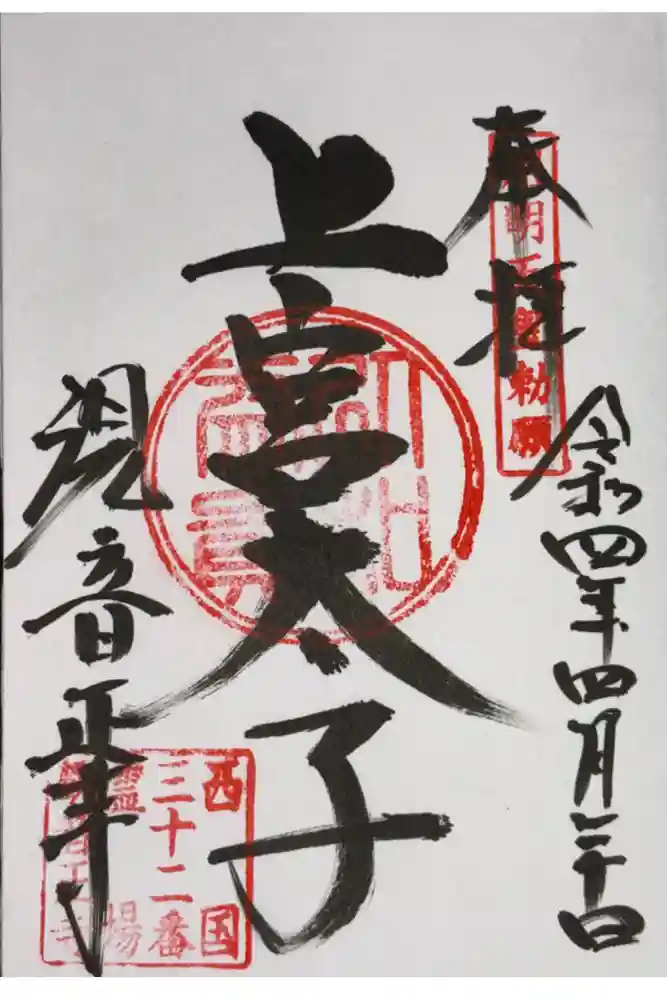 奉拝
用明天皇勅願
令和四年四月二十日
上宮太子
観音正寺
西国
三十二番
靈場
觀音正寺